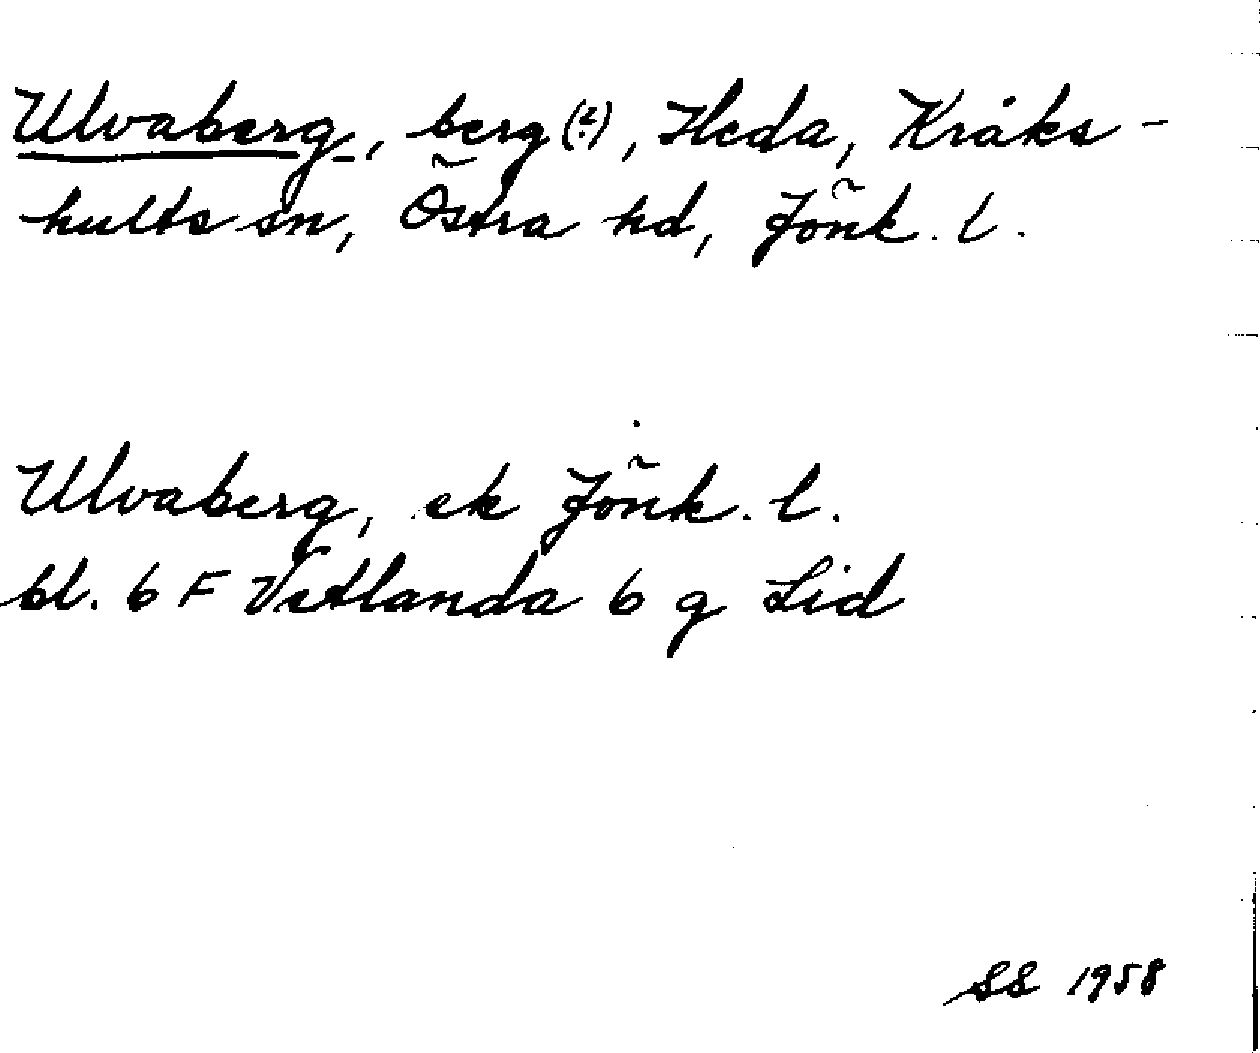 Ulvaberg, berg(?), Heda, Kråks-
hults sn, Östra hd, Jönk. l.
Ulvaberg, ek Jönk. l.
bl. 6 F Vetlanda 6 g Lid
SS 1958